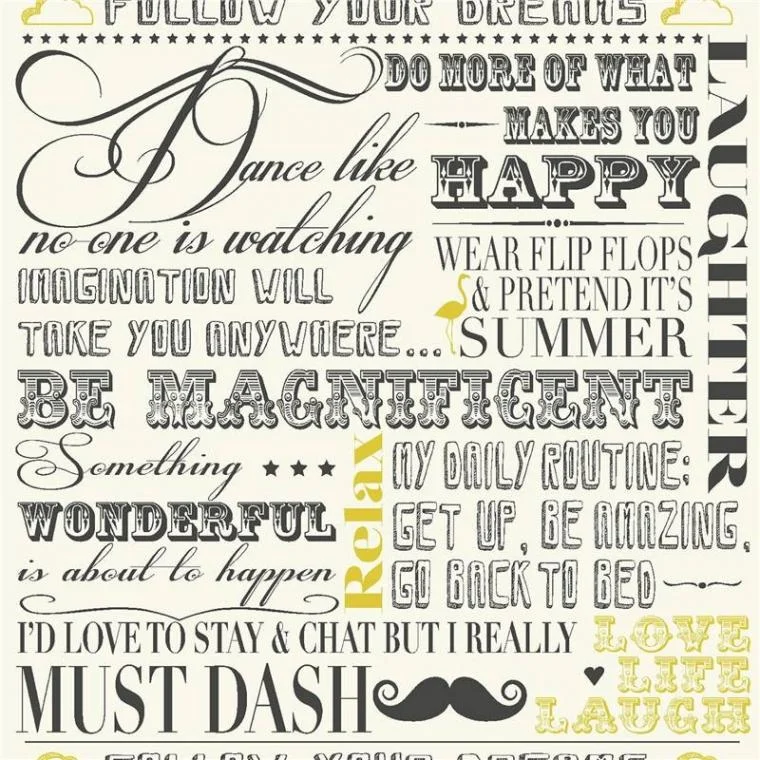 FOLLOW YOUR DREAMS
Dance like
no one is watching
DO MORE OF WHAT
MAKES YOU
HAPPY
LAUGHTER
WEAR FLIP FLOPS
& PRETEND IT'S
SUMMER
IMAGINATION WILL
TAKE YOU ANYWHERE...
BE MAGNIFICENT
Something
WONDERFUL
is about to happen
Relax
MY DAILY ROUTINE:
GET UP, BE AMAZING,
GO BACK TO BED
I'D LOVE TO STAY & CHAT BUT I REALLY
MUST DASH
LOVE
LIFE
LAUGH
FOLLOW YOUR DREAMS